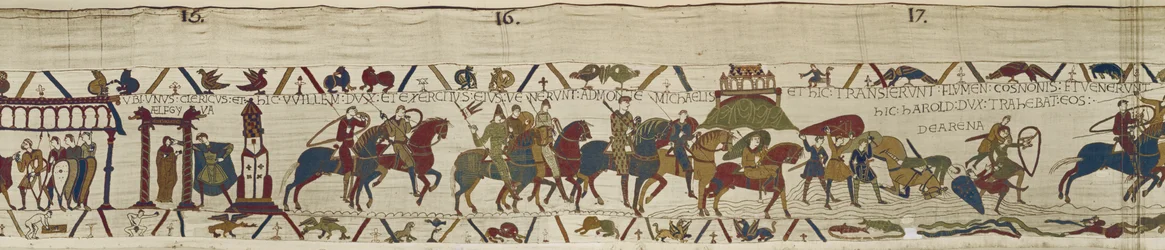 15. 16. 17.
UBI:UNUS:CLERICUS:ET:
ÆLFGYVA
HIC:VVILLEM:DUX:ET EXERCITUS:EIUS:VENERUNT:AD MONTE MICHAELIS
ET HIC:TRANSIERUNT:FLUMEN:COSNONIS:ET VENERUNT
HIC:HAROLD:DUX:TRAHEBAT:EOS:
DE ARENA